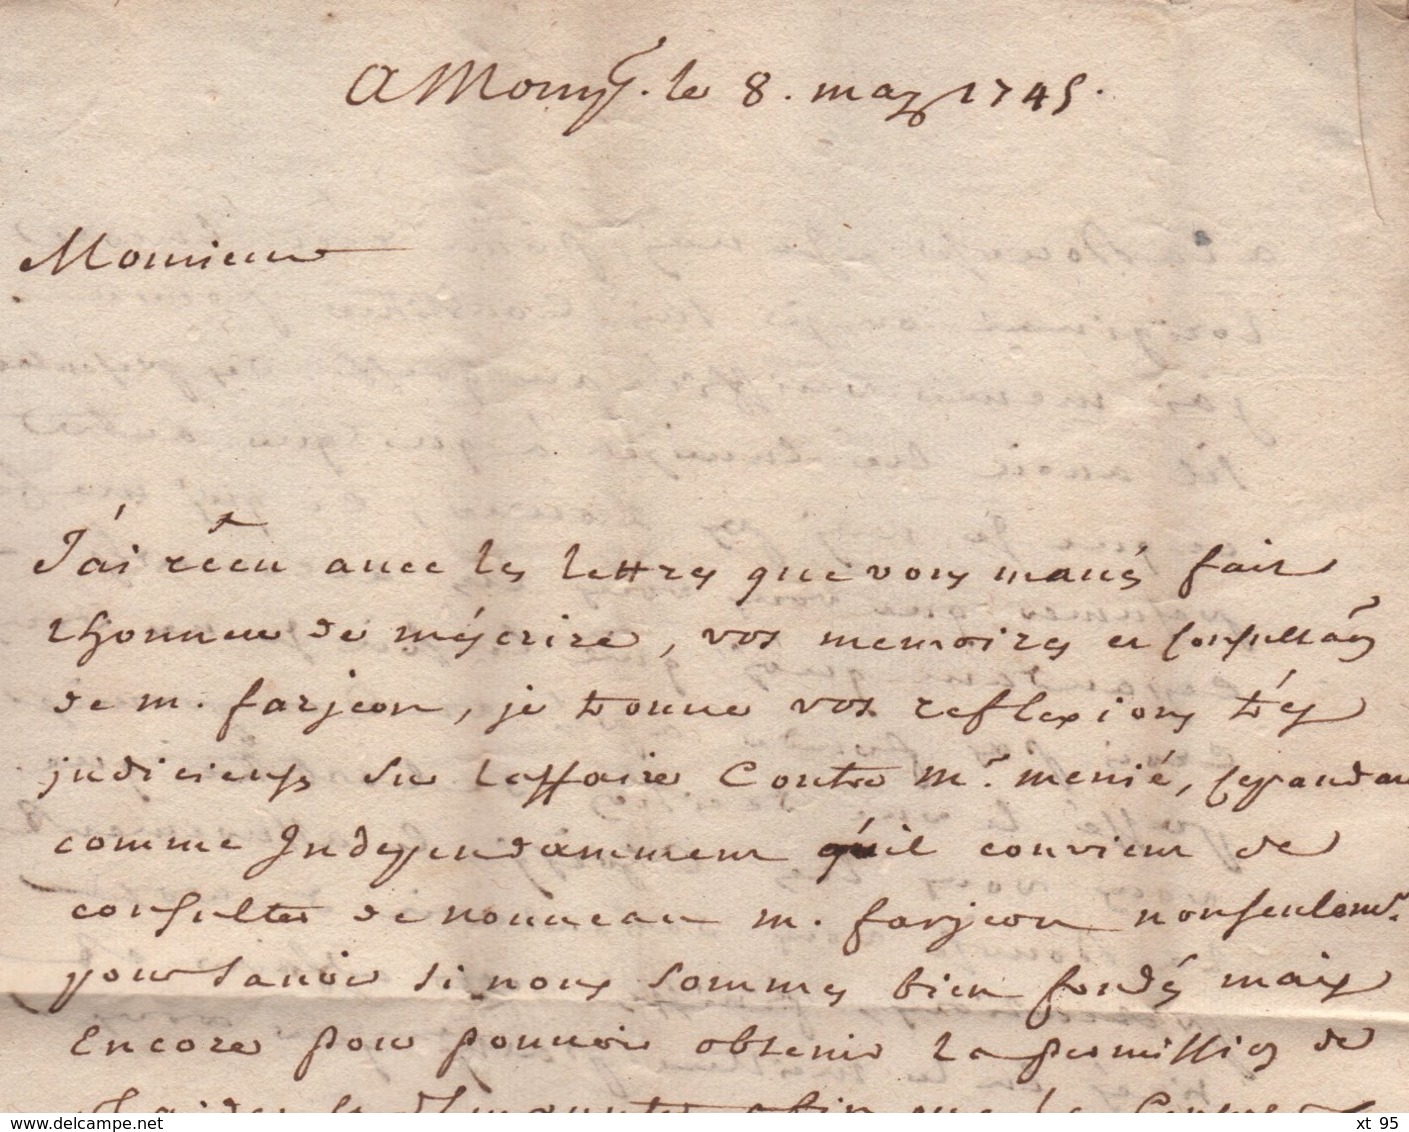 A Mom^r. le 8. may 1745.
Monsieur
J'ai receu avec les lettres que vous m'aués fait
l'honneur de m'éscrire, vos memoires et consulta^ons
de m. farjeon, je trouue vos reflexions trés
judicieuses sur l'affaire Contre M.^r menié, cepandan
comme Independamment qu'il convient de
consulter de nouueau m. farjeon nonseulem^t.
pour sauoir si nous sommes bien fondés mais
Encore pour pouuoir obtenir la permission de
plaider
www.delcampe.net
xt 95